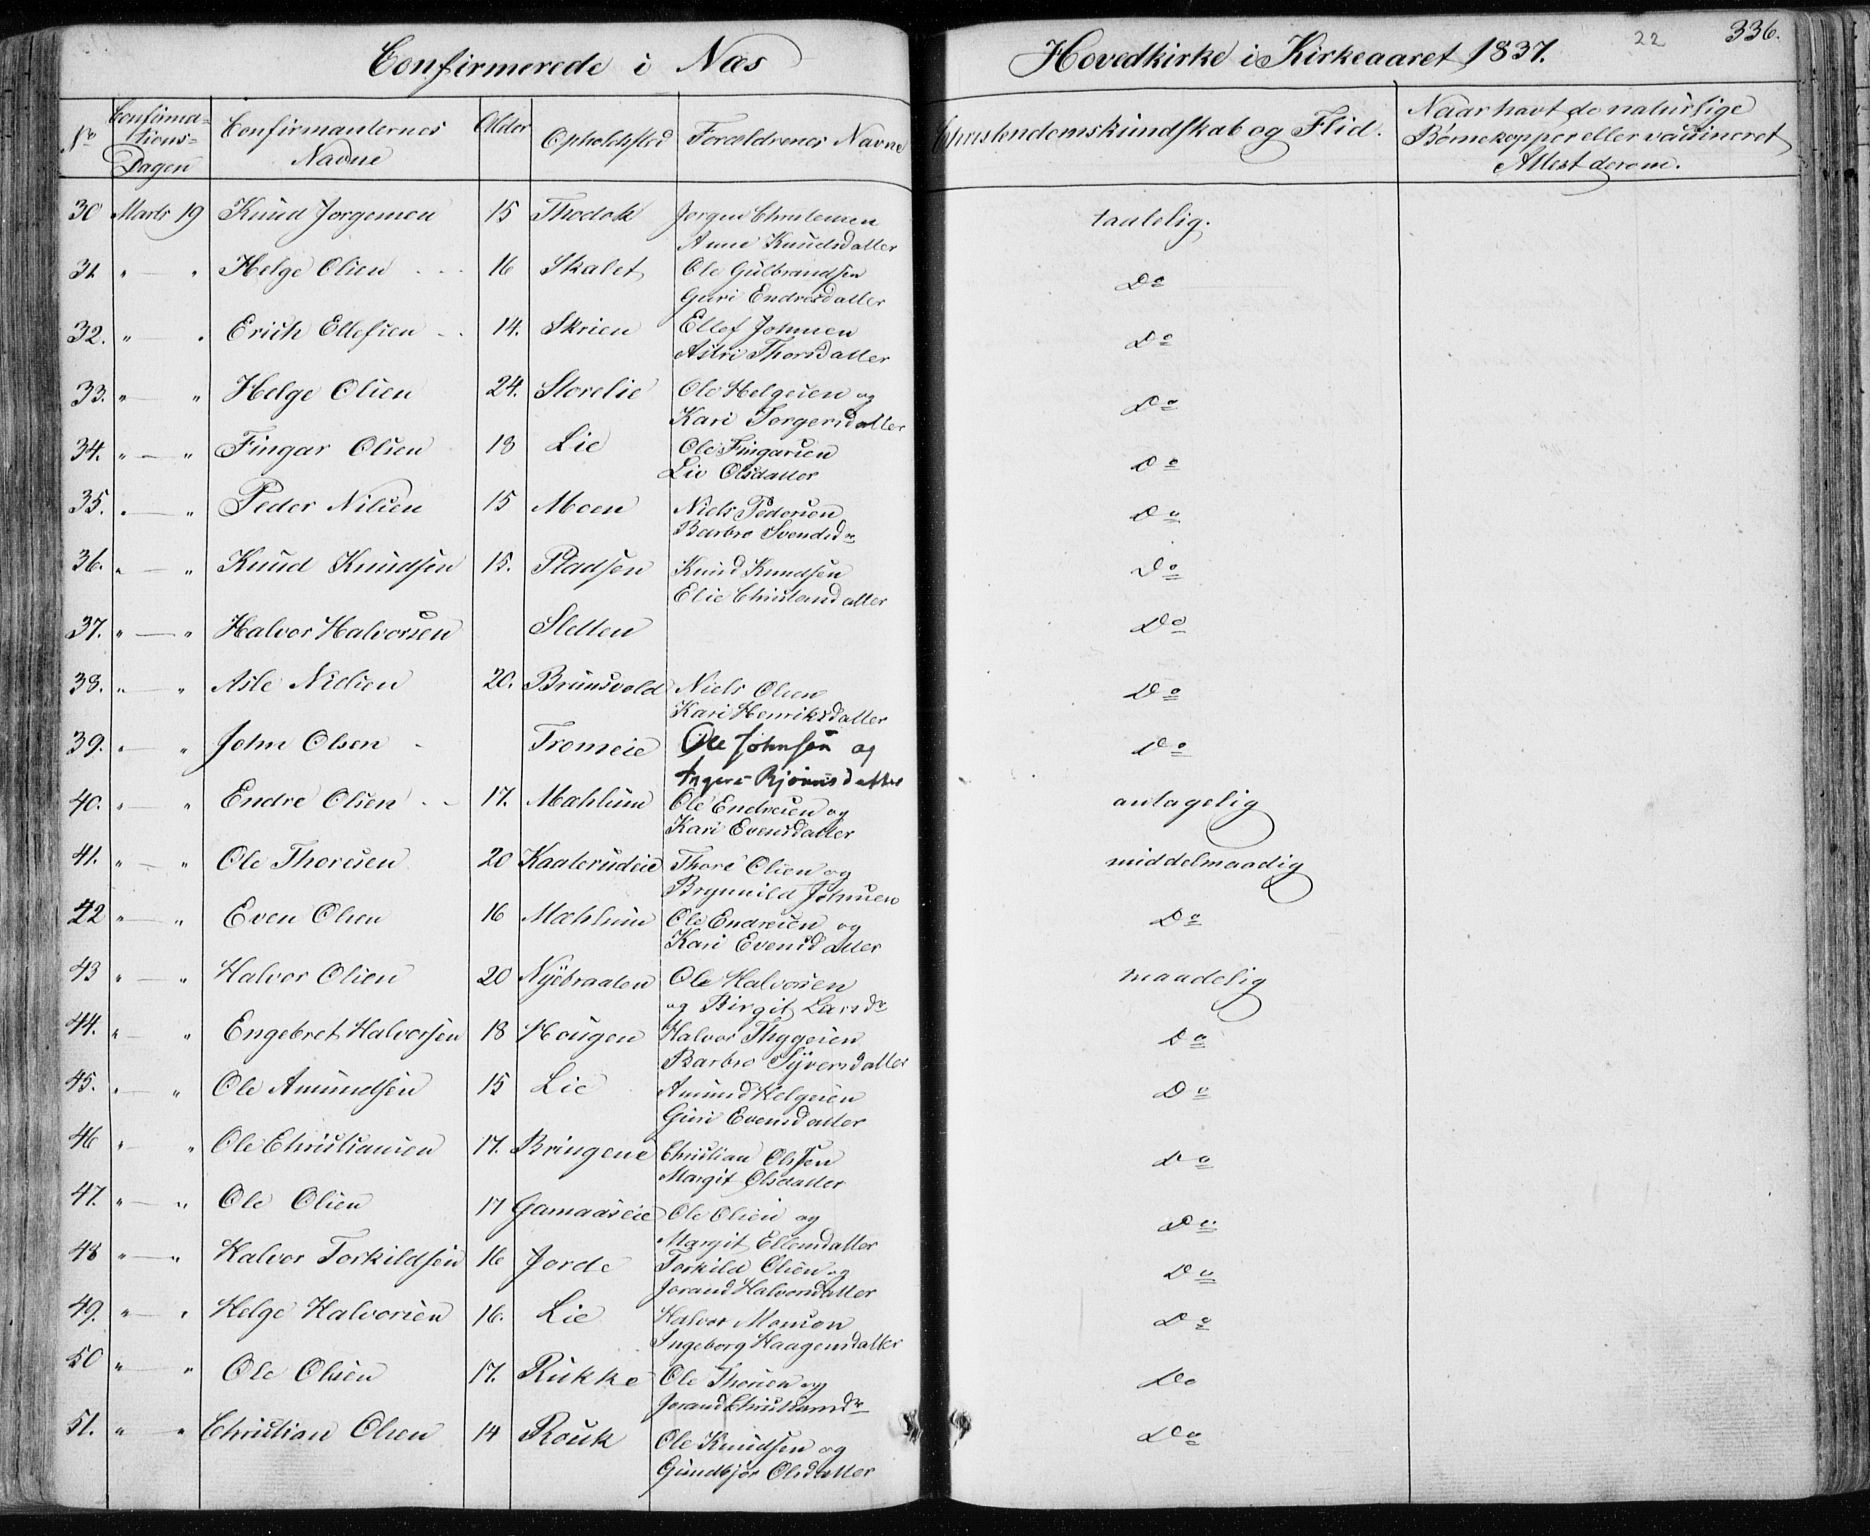 Confirmerede i Næs Hovedkirke i Kirkeaaret 1837. 22 336.
No Confirmations-Dagen Confirmanternes Navne Alder Opholdsted Forældrenes Navne Christendomskundskab og Flid. Naar havt de naturlige Børnekopper eller vaccineret Attest derom.
30 Marts 19 Knud Jorgensen 15 Thodok Jorgen Christensen taalelig.
Anne Knudsdatter
31 " — " Helge Olsen 16 Skalet Ole Gulbrandsen Do
Guri Endresdatter
32. " — " Erich Ellefsen 14. Skrien Ellef Johnsen Do
Astri Thorsdatter
33. " — " Helge Olsen 24. Storelie Ole Helgesen og Do
Kari Torgersdatter
34. " — " Fingar Olsen 18 Lie Ole Fingarsen Do
Liv Olsdatter
35. " — " Peder Nilsen 15 Moen Niels Pedersen Do
Barbro Svendsdr
36. " — " Knud Knudsen 15. Pladsen Knud Knudsen Do
Elie Christensdatter
37. " — " Halvor Halvorsen Sletten Do
38. " — " Asle Nielsen 20. Brunsvold Niels Olsen Do
Kari Henriksdatter
39. " " John Olsen Tromeie Ole Johnsen og Do
Ingere Bjørnsdatter
40. " " Endre Olsen 17. Mahlum Ole Endresen og antagelig
Kari Evensdatter
41. " — " Ole Thoresen 20 Kaaterudeie Thore Olsen og middelmaadig
Brynnild Johnsen
42 " — " Even Olsen 16 Mahlum Ole Endresen og Do
Kari Evensdatter
43 " — " Halvor Olsen 20 Nyebraaten Ole Halvorsen maadelig
og Birgit Larsdr
44. " — " Engebret Halvorsen 18 Hougen Halvor Thygesen Do
Barbro Syversdatter
45. " — " Ole Amundsen 15 Lie Amund Helgesen Do
Guri Evensdatter
46 " — " Ole Christiansen 17. Bringene Christian Olssen Do
Margit Olsdatter
47. " — " Ole Olsen 17 Gamaaseie Ole Olsen og Do
Margit Ellensdatter
48 " — " Halvor Torkildsen 16 Jorde Torkild Olsen og Do
Jorand Halvorsdatter
49. " — " Helge Halvorsen 16. Lie Halvor Monsen Do
Ingeborg Haagensdatter
50 " — " Ole Olsen 17. Rukke Ole Thorsen og Do
Jorand Christiansdr
51. " — " Christian Olsen 14 Rouk Ole Knudsen og Do
Gundbjør Olsdatter